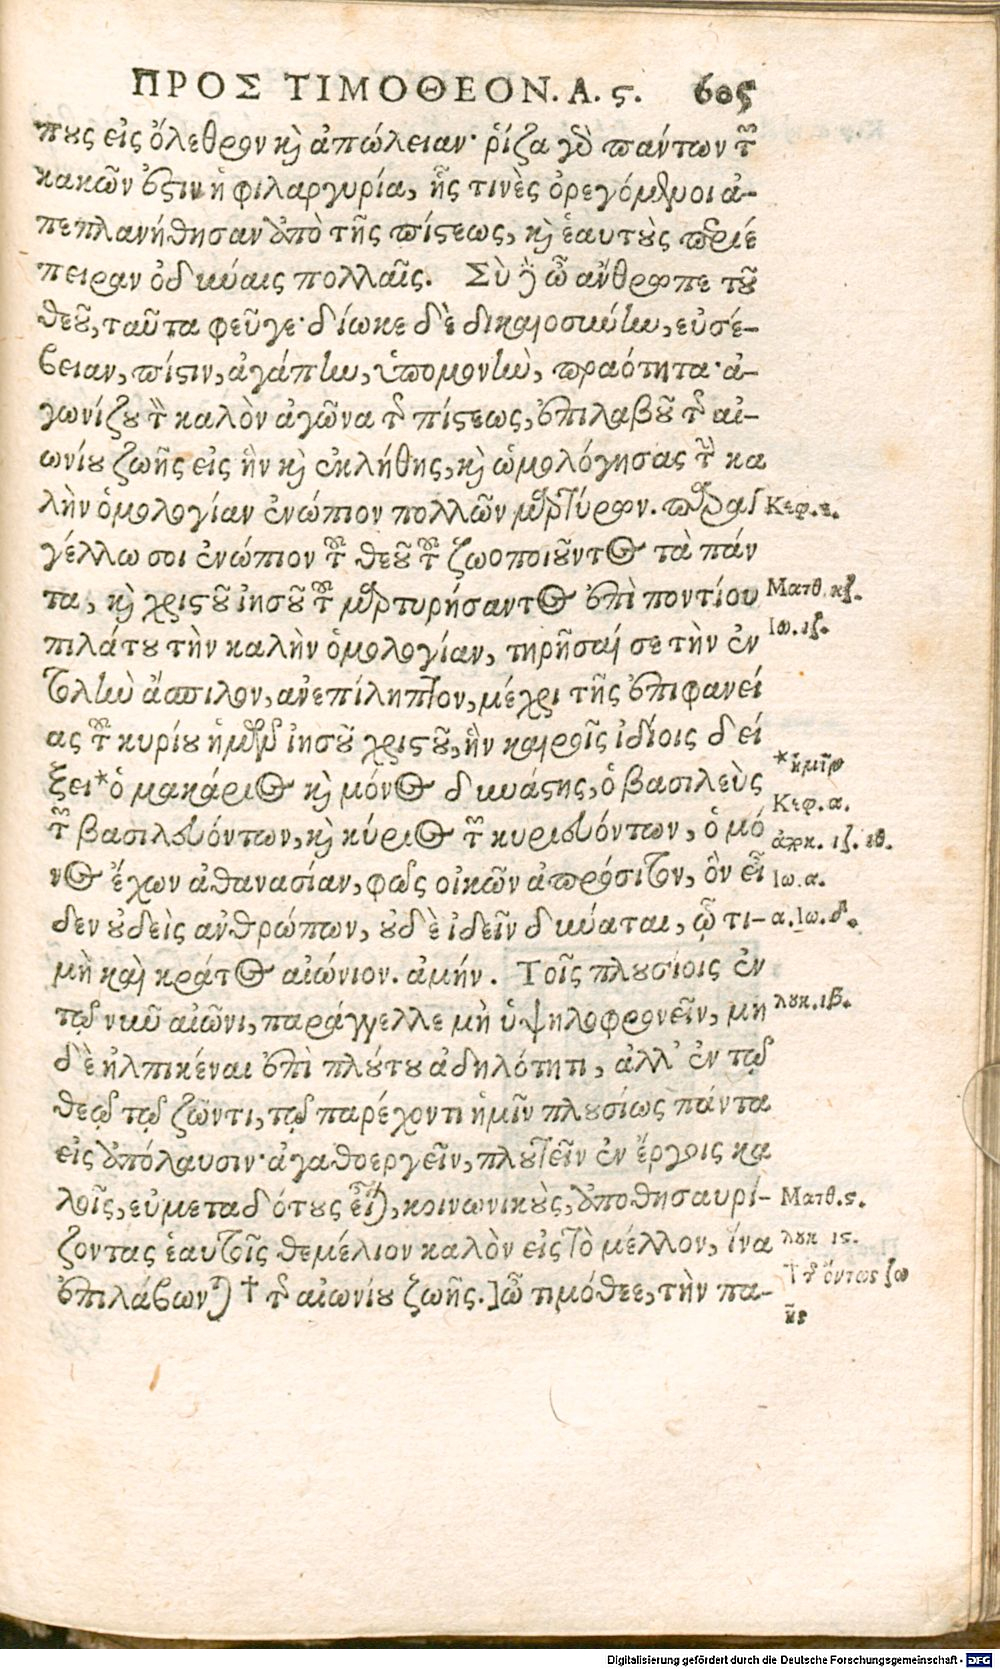 ΠΡΟΣ ΤΙΜΟΘΕΟΝ. Α. ϛ. 605
πους εἰς ὄλεθρον καὶ ἀπώλειαν· ῥίζα γὰρ πάντων τῶν
κακῶν ἐστιν ἡ φιλαργυρία, ἧς τινὲς ὀρεγόμενοι ἀ-
πεπλανήθησαν ἀπὸ τῆς πίστεως, καὶ ἑαυτοὺς περιέ
πειραν ὀδύναις πολλαῖς. Σὺ δὲ ὦ ἄνθρωπε τοῦ
θεοῦ, ταῦτα φεῦγε· δίωκε δὲ δικαιοσύνην, εὐσέ-
βειαν, πίστιν, ἀγάπην, ὑπομονὴν, πραότητα· ἀ-
γωνίζου τὸν καλὸν ἀγῶνα τῆς πίστεως, ἐπιλαβοῦ τῆς αἰ-
ωνίου ζωῆς εἰς ἣν καὶ ἐκλήθης, καὶ ὡμολόγησας τὴν κα
λὴν ὁμολογίαν ἐνώπιον πολλῶν μαρτύρων. παραγ Κεφ. ε.
γέλλω σοι ἐνώπιον τοῦ θεοῦ τοῦ ζωοποιοῦντος τὰ πάν
τα, καὶ χριστοῦ ἰησοῦ τοῦ μαρτυρήσαντος ἐπὶ ποντίου Ματθ. κζ.
πιλάτου τὴν καλὴν ὁμολογίαν, τηρῆσαί σε τὴν ἐν Ιω. ιζ.
τολὴν ἄσπιλον, ἀνεπίληπτον, μέχρι τῆς ἐπιφανεί
ας τοῦ κυρίου ἡμῶν ἰησοῦ χριστοῦ, ἣν καιροῖς ἰδίοις δεί
ξει * ὁ μακάριος καὶ μόνος δυνάστης, ὁ βασιλεὺς *
τῶν βασιλευόντων, καὶ κύριος τῶν κυριευόντων, ὁ μό Κεφ. α.
νος ἔχων ἀθανασίαν, φῶς οἰκῶν ἀπρόσιτον, ὃν εἶ Ιω. α.
δεν οὐδεὶς ἀνθρώπων, οὐδὲ ἰδεῖν δύναται, ᾧ τι- α. Ιω. δ.
μὴ καὶ κράτος αἰώνιον. ἀμήν. Τοῖς πλουσίοις ἐν
τῷ νῦν αἰῶνι, παράγγελλε μὴ ὑψηλοφρονεῖν, μη λυκ. ιβ.
δὲ ἠλπικέναι ἐπὶ πλούτου ἀδηλότητι, ἀλλ' ἐν τῷ
θεῷ τῷ ζῶντι, τῷ παρέχοντι ἡμῖν πλουσίως πάντα
εἰς ἀπόλαυσιν· ἀγαθοεργεῖν, πλουτεῖν ἐν ἔργοις κα
λοῖς, εὐμεταδότους εἶναι, κοινωνικοὺς, ἀποθησαυρί- Ματθ. ϛ.
ζοντας ἑαυτοῖς θεμέλιον καλὸν εἰς τὸ μέλλον, ἵνα λυκ ιϛ.
ἐπιλάβωνται † τῆς αἰωνίου ζωῆς.] ὦ τιμόθεε, τὴν πα- † τῆς ὄντως ζω
ῆς